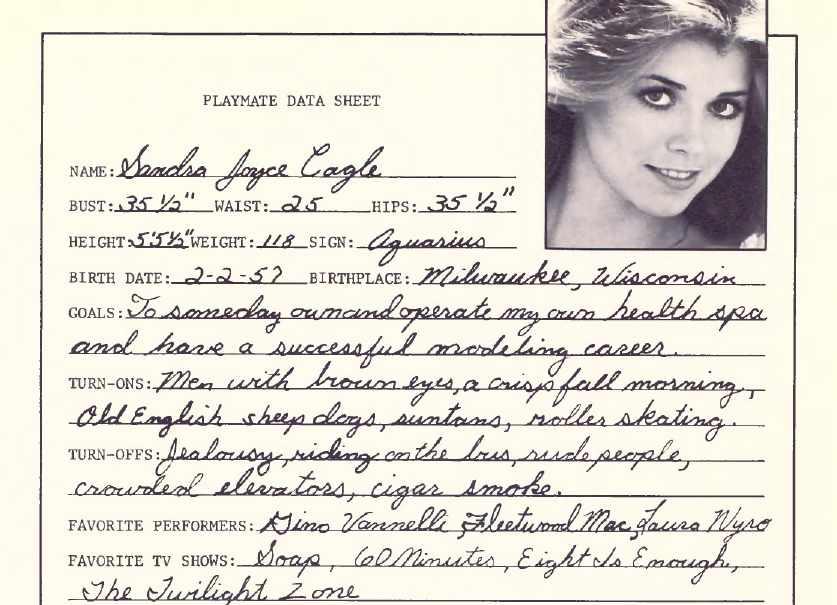 PLAYMATE DATA SHEET
NAME: Sandra Joyce Cagle
BUST: 35 1/2" WAIST: 25 HIPS: 35 1/2"
HEIGHT: 5'5½" WEIGHT: 118 SIGN: Aquarius
BIRTH DATE: 2-2-57 BIRTHPLACE: Milwaukee, Wisconsin
GOALS: To someday own and operate my own health spa
and have a successful modeling career.
TURN-ONS: Men with brown eyes, a crisp fall morning,
Old English sheep dogs, suntans, roller skating.
TURN-OFFS: Jealousy, riding on the bus, rude people,
crowded elevators, cigar smoke.
FAVORITE PERFORMERS: Gino Vannelli, Fleetwood Mac, Laura Nyro
FAVORITE TV SHOWS: Soap, 60 Minutes, Eight Is Enough,
The Twilight Zone